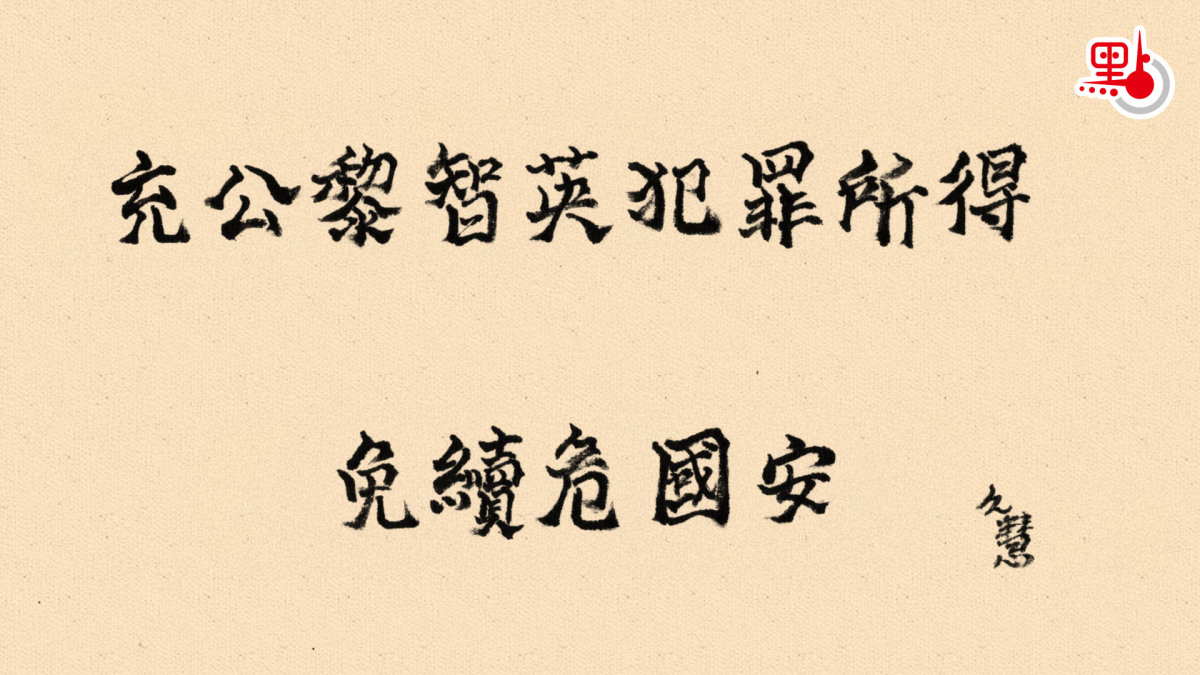 點
充公黎智英犯罪所得
免續危國安
久慧